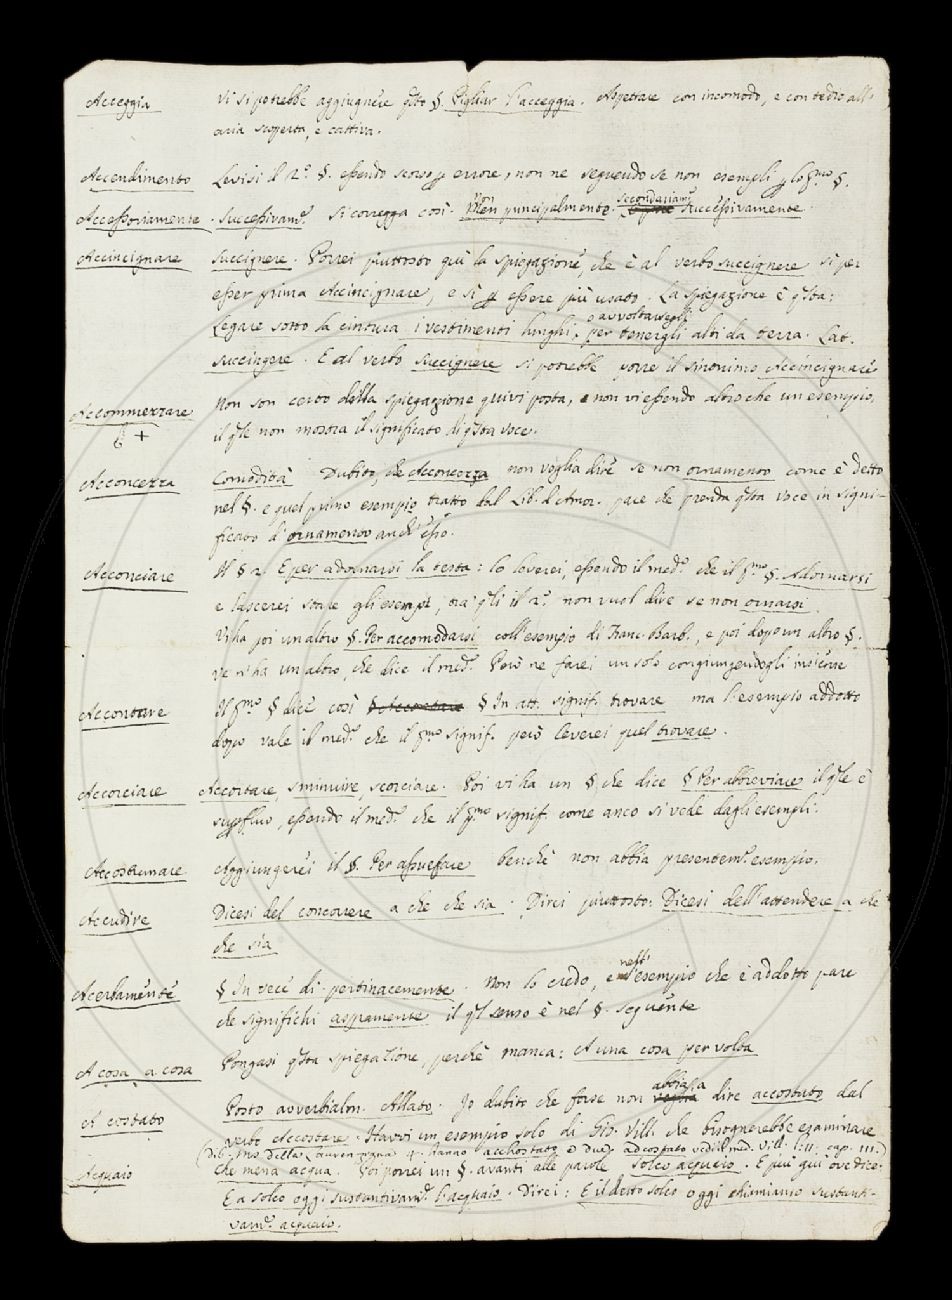 Acceggia Vi si potrebbe aggiugnere qsto §. Pigliar l'acceggia. Aspettare con incomodo, e con tedio all'
aria scoperta, e cattiva.
Accendimento Levisi il 2.° §. essendo scorso p errore, non ne seguendo se non esempli p lo pmo §.
Accessoriamente. Successivamte. si corregga così. Non principalmente. secondariamte Successivamente.
Accincignare Succignere. Porrei piuttosto quì la spiegazione, che è al verbo succignere sì per
esser prima Accincignare, e sì p essere più usato. La spiegazione è qsta:
Legare sotto la cintura i vestimenti lunghi, o avvoltarsegli per tenergli alti da terra. Lat.
succingere. E al verbo succignere si potrebbe porre il sinonimo Accincignare
Accommezzare Non son certo della spiegazione quivi posta, e non vi essendo altro che un esempio,
il qle non mostra il significato di qsta voce.
+
Acconcezza Comodità Dubito, che Acconcezza non voglia dire se non ornamento come è detto
nel §. e quel primo esempio tratto dal Lib. d. Amor. pare che prenda qsta voce in signi-
ficato d'ornamento anch'esso.
Acconciare Il § 2. E per adornarsi la testa: lo leverei, essendo il med. che il pmo §. Adornarsi
e lascerei stare gli esempi, ora qli il 2° non vuol dire se non ornarsi.
Vi ha poi un altro §. Per accomodarsi coll'esempio di Franc. Barb., e poi dopo un altro §.
ve n'ha un altro, che dice il med. Però ne farei un solo congiungendogli insieme
Accontare Il pmo § dice così § In att. signif. trovare ma l'esempio addotto
dopo vale il med. che il pmo signif. però leverei quel trovare.
Accorciare Accortare, sminuire, scorciare. Poi vi ha un § che dice § Per abbreviare il qle è
supfluo, essendo il med. che il pmo signif. come anco si vede dagli esempli.
Accostumare Aggiungerei il §. Per assuefare benchè non abbia presentemte esempio.
Accudire Dicesi del concorrere a che che sia. Direi piuttosto: Dicesi dell'attendere a che
che sia
Acerbamente § In vece di pertinacemente. Non lo credo, e nell'esempio che è addotto pare
che significhi aspramente il ql senso è nel §. seguente
A cosa a cosa Pongasi qsta spiegazione, perchè manca: A una cosa per volta
A costato Posto avverbialm. Allato. Io dubito che forse non abbia a dire accostato dal
verbo Accostare. Havvi un esempio solo di Gio. Vill. che bisognerebbe esaminare
(Dib. Mss. della Laurenziana 4. hanno acchostato e due, adcostato vedi il med. Vill. l: 11: cap. 111.)
Acquaio che mena acqua. Poi porrei un §. avanti alle parole solco acquaio. E più quì ove dice
E a solco oggi sustantivamte. l'acquaio. Direi: E il detto solco oggi chiamiamo sustanti-
vamte. acquaio.